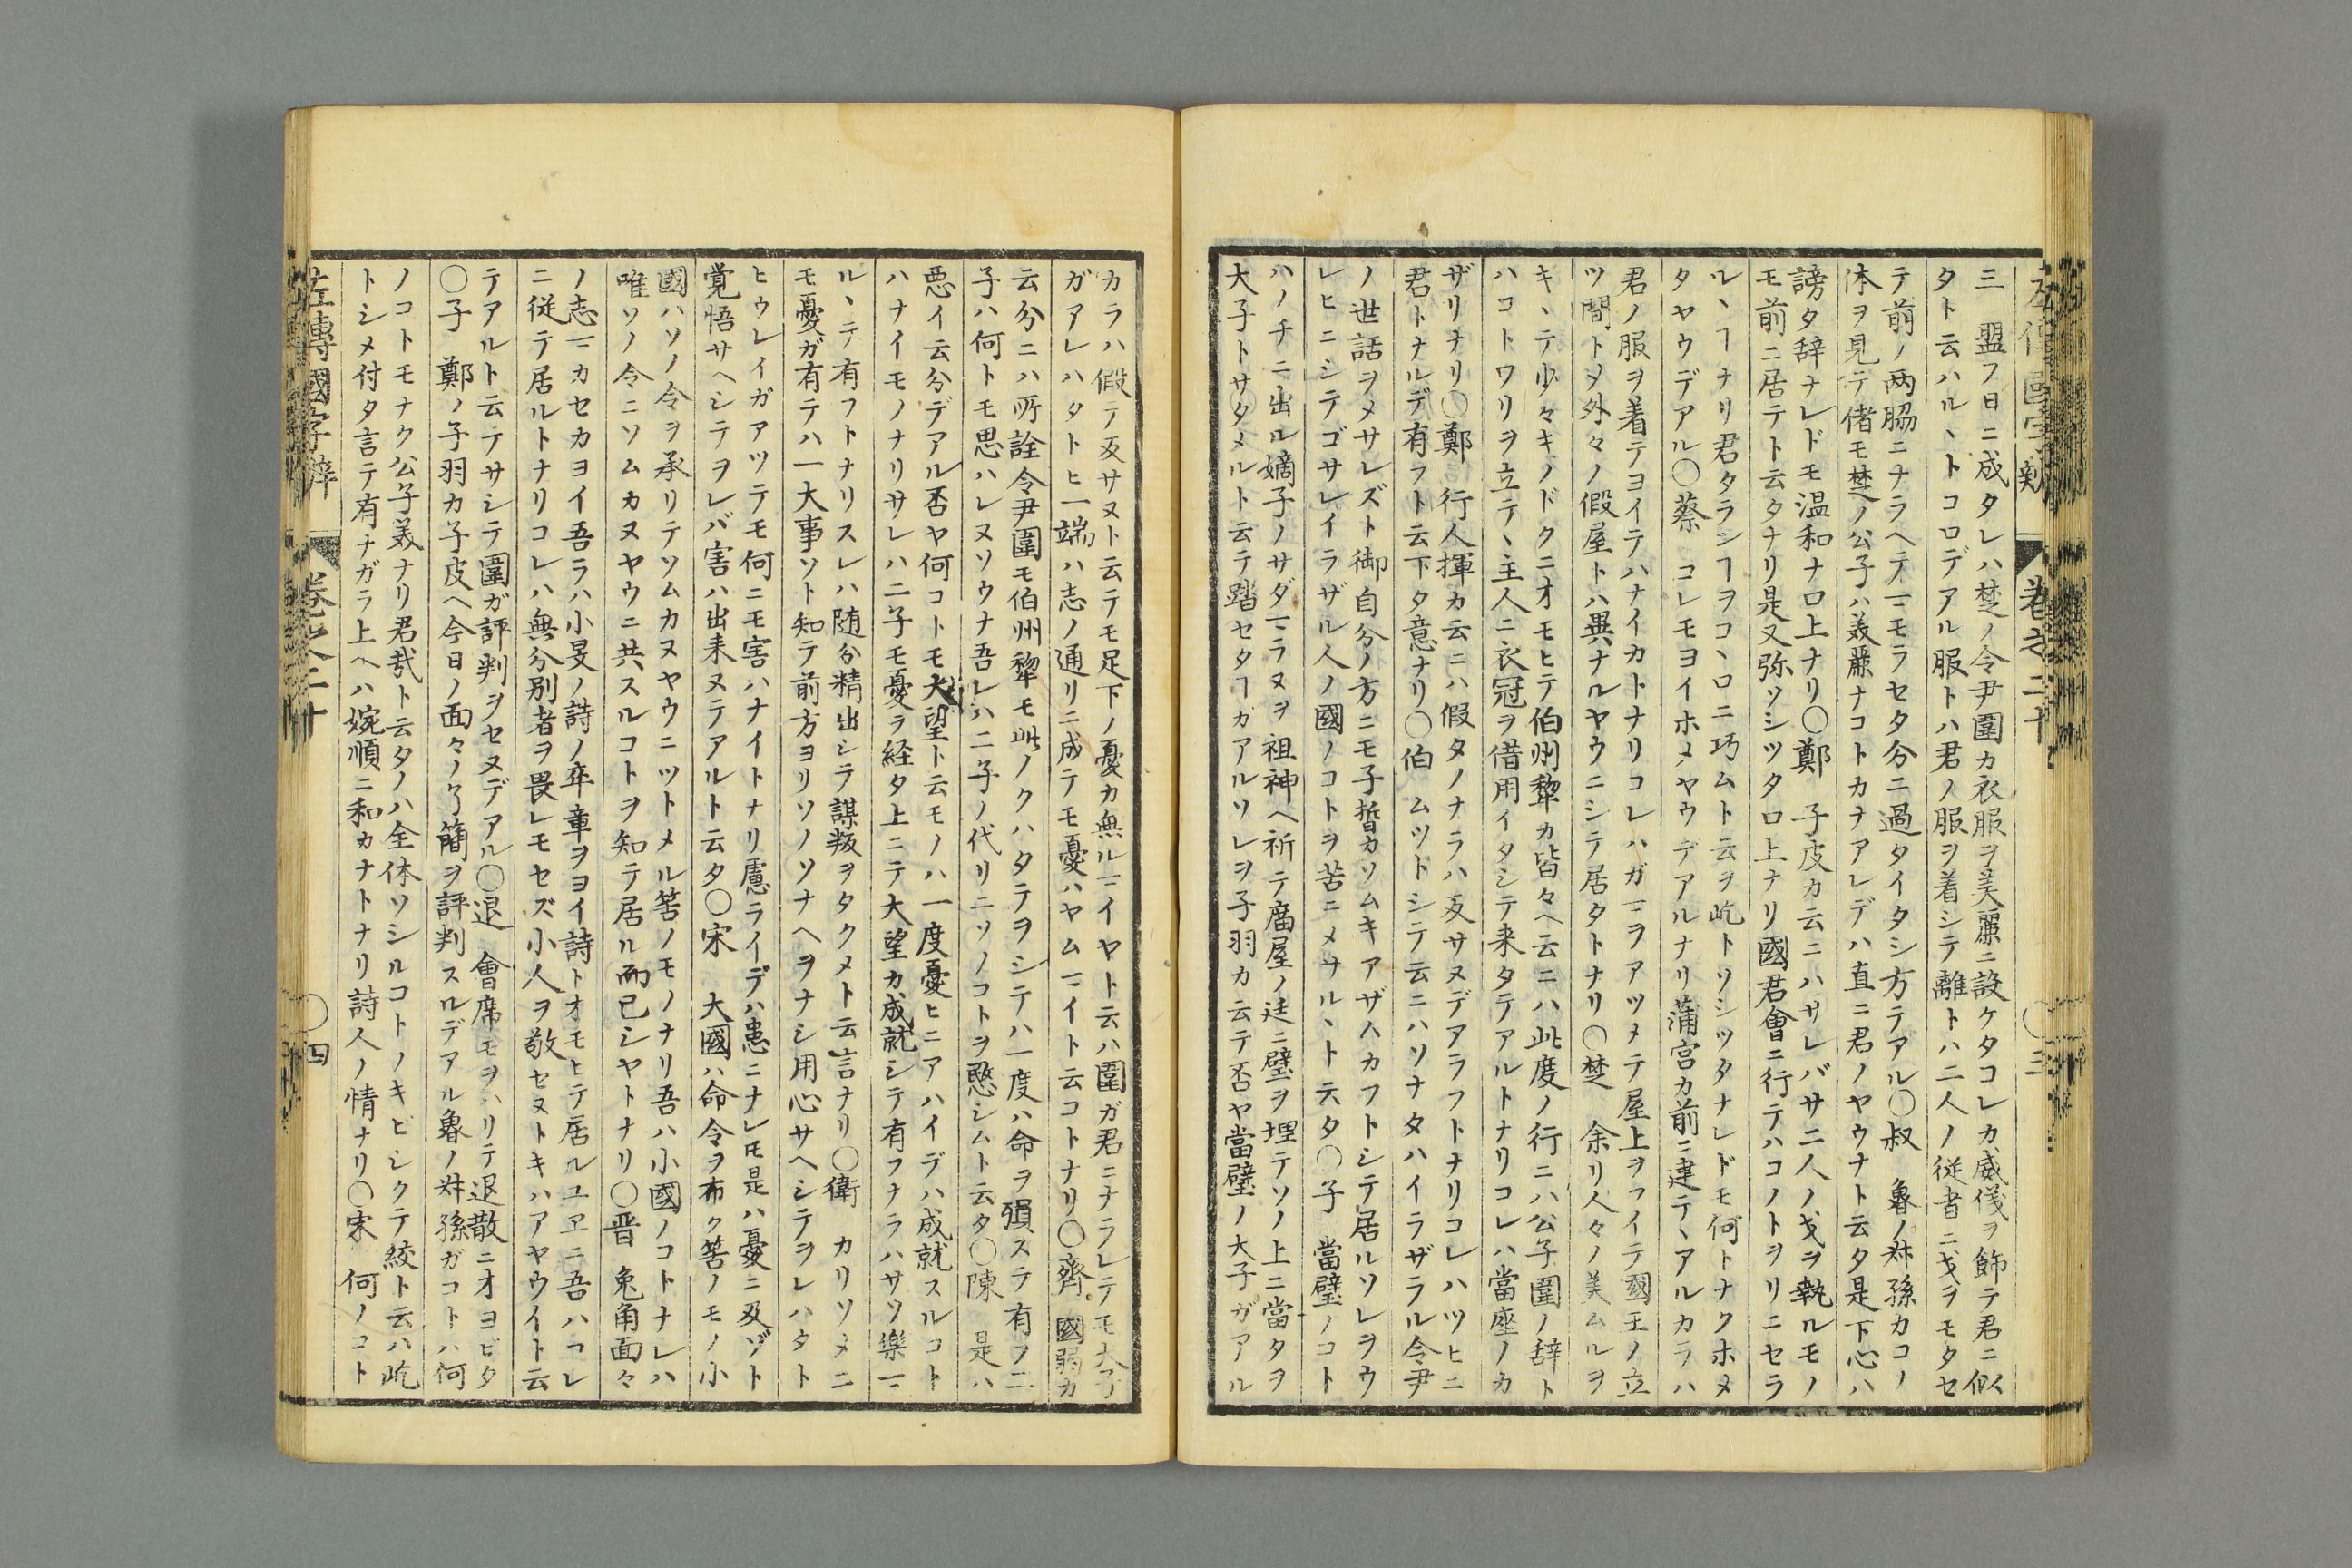 三 盟フ日ニ成タレハ楚ノ令尹圍カ衣服ヲ美麗ニ設ケタコレカ威儀ヲ飾テ君ニ似
タト云ハルヽトコロデアル服トハ君ノ服ヲ着シテ離トハ二人ノ従者ニ戈ヲモタセ
テ前ノ両脇ニナラヘテヿモラセタ分ニ過タイタシ方テアル〇叔 魯ノ叔孫カコノ
体ヲ見テ偖モ楚ノ公子ハ美麗ナコトカナアレデハ直ニ君ノヤウナト云タ是下心ハ
謗タ辞ナレドモ温和ナ口上ナリ〇鄭 子皮カ云ニハサレバサ二人ノ戈ヲ執ルモノ
モ前ニ居テト云タナリ是又弥ソシツタ口上ナリ國君會ニ行テハコノトヲリニセラ
ルヽヿナリ君タラシヿヲコヽロニ巧ムト云ヲ屹トソシツタナレドモ何トナクホメ
タヤウデアル〇蔡 コレモヨイホメヤウデアルナリ蒲宮カ前ニ建テヽアルカラハ
君ノ服ヲ着テヨイテハナイカトナリコレハガヿヲアツメテ屋上ヲフイテ國王ノ立
ツ間トメ外々ノ假屋トハ異ナルヤウニシテ居タトナリ〇楚 余リ人々ノ美ムルヲ
キヽテ少々キノドクニオモヒテ伯州犂カ皆々ヘ云ニハ此度ノ行ニハ公子圍ノ辞ト
ハコトワリヲ立テヽ主人ニ衣冠ヲ借用イタシテ来タテアルトナリコレハ當座ノカ
ザリナリ〇鄭 行人揮カ云ニハ假タノナラハ反サヌデアラフトナリコレハツヒニ
君トナルデ有フト云下タ意ナリ〇伯 ムツトシテ云ニハソナタハイラザラル令尹
ノ世話ヲメサレズト御自分ノ方ニモ子晳カソムキアザムカフトシテ居ルソレヲウ
レヒニシテゴサレイラザル人ノ國ノコトヲ苦ニメサルヽト云タ〇子 當璧ノコト
ハノチニ出ル嫡子ノサダヿラヌヲ祖神ヘ祈テ庿屋ノ廷ニ璧ヲ埋テソノ上ニ當タヲ
大子トサタメルト云テ踏セタヿガアルソレヲ子羽カ云テ否ヤ當璧ノ大子ガアル
カラハ假テ反サヌト云テモ足下ノ憂カ無ルヿイヤト云ハ圍ガ君ニナラレテモ大子
ガアレハタトヒ一端ハ志ノ通リニ成テモ憂ハヤムヿイト云コトナリ〇齊 國弱カ
云分ニハ所詮令尹圍モ伯州犂モ此ノクハタテヲシテハ一度ハ命ヲ損ステ有フ二
子ハ何トモ思ハレヌソウナ吾レハ二子ノ代リニソノコトヲ愍シムト云タ〇陳 是ハ
悪イ云分デアル否ヤ何コトモ大望ト云モノハ一度憂ヒニアハイデハ成就スルコト
ハナイモノナリサレハ二子モ憂ヲ経タ上ニテ大望カ成就シテ有フナラハサソ樂ヿ
ルヽテ有フトナリスレハ随分精出シテ謀叛ヲタクメト云言ナリ〇衛 カリソメニ
モ憂ガ有テハ一大事ソト知テ前方ヨリソノソナヘヲナシ用心サヘシテヲレハタト
ヒウレイガアツテモ何ニモ害ハナイトナリ慮ライデハ恚ニナレモ是ハ憂ニ及ゾト
覚悟サヘシテヲレバ害ハ出来ヌテアルト云タ〇宋 大國ハ命令ヲ布ク筈ノモノ小
國ハソノ令ヲ承リテソムカヌヤウニツトメル筈ノモノナリ吾ハ小國ノコトナレハ
唯ソノ令ニソムカヌヤウニ共スルコトヲ知テ居ル而已シヤトナリ〇晋 兎角面々
ノ志ヿカセカヨイ吾ラハ小旻ノ詩ノ卒章ヲヨイ詩トオモヒテ居ルユヱニ吾ハコレ
ニ従テ居ルトナリコレハ無分別者ヲ畏レモセズ小人ヲ敬セヌトキハアヤウイト云
テアルト云テサシテ圍ガ評判ヲセヌデアル〇退 會席モヲハリテ退散ニオヨビタ
〇子 鄭ノ子羽カ子皮ヘ今日ノ面々ノ了簡ヲ評判スルデアル魯ノ叔孫ガコトハ何
ノコトモナク公子美ナリ君哉ト云タノハ全体ソシルコトノキビシクテ絞ト云ハ屹
トシメ付タ言テ有ナガラ上ヘハ婉順ニ和カナトナリ詩人ノ情ナリ〇宋 何ノコト
左傳國字辯 巻之二十 〇四